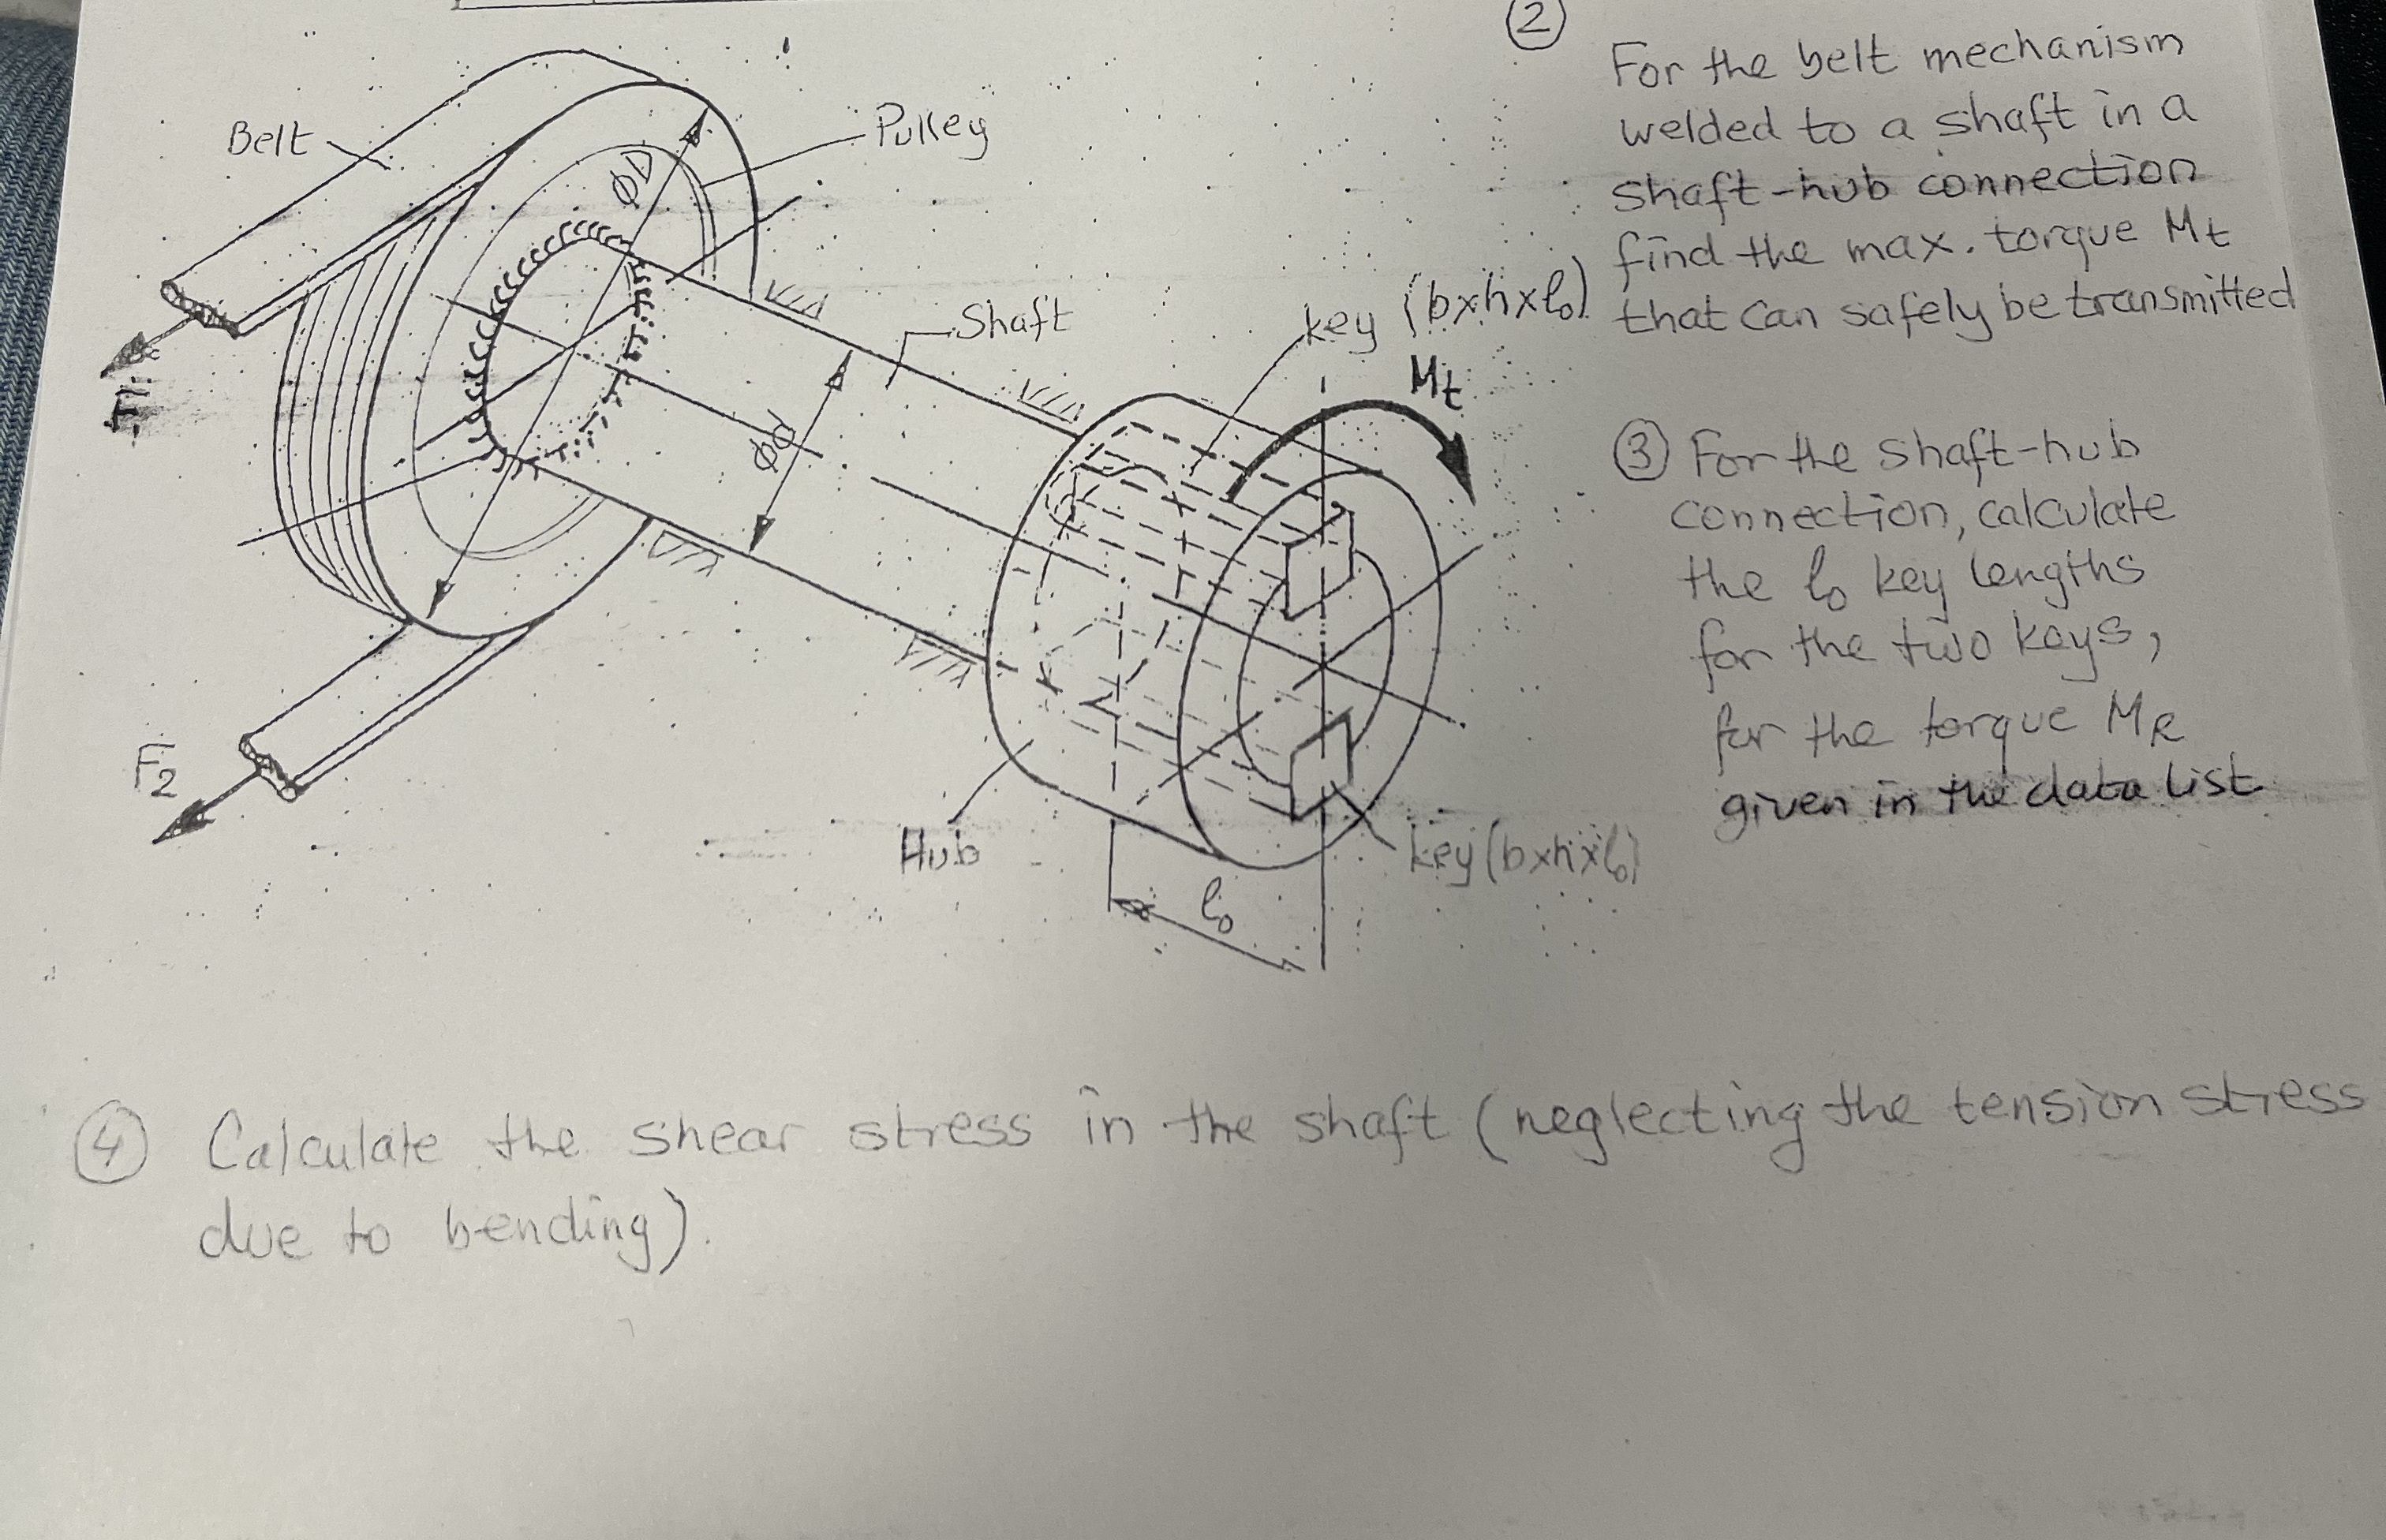 Belt
Pulley
ØD
F1
Shaft
Ød
key (bxhxl₀)
Mt
F2
Hub
key (bxhxl₀)
l₀
②
For the belt mechanism
welded to a shaft in a
shaft-hub connection
find the max. torque Mt
that can safely be transmitted
③ For the shaft-hub
connection, calculate
the l₀ key lengths
for the two keys,
for the torque MR
given in the data list
④ Calculate the shear stress in the shaft (neglecting the tension stress
due to bending).